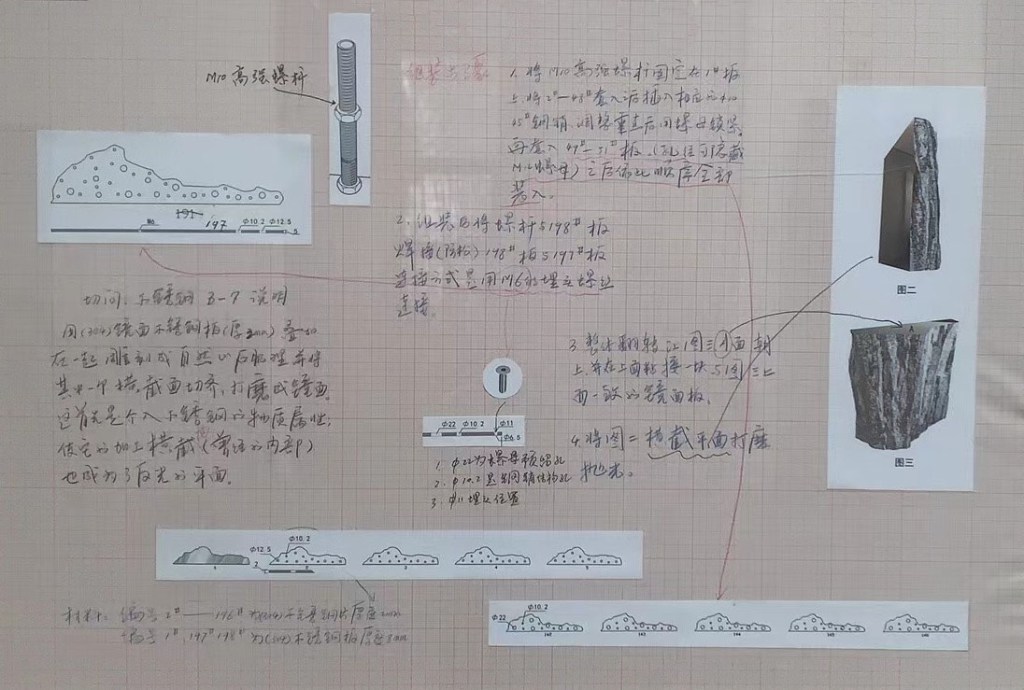 M10 高强螺杆
组装步骤
1. 将 M10 高强螺杆固定在1#板
上 将2#—48#套入后插入相应的φ10
45#钢销，调整垂直后用螺母锁紧
再套入49#—51#板（孔位可隐藏
M10螺母）之后依此顺序全部
装入。
2、组装后将螺杆与198#板
焊牢 198#板与197#板
连接方式是用M6的埋头螺丝
连接。
191
197
80
Φ10.2
Φ12.5
5
切问：不锈钢 3-7 说明
用(304)镜面不锈钢板(厚2mm)叠加
在一起雕刻成自然山石肌理并将
其中一个横截面切齐，打磨成镜面
这首先是介入不锈钢的物质属性；
使它的加工横截(曾经的内部)
也成为了反光的平面。
3. 整体翻转让图三A面朝
上 并在上面粘接一块与图三A
面一致的镜面板。
4. 将图二横截平面打磨
抛光。
图二
A
图三
Φ22
Φ10.2
Φ11
Φ6.5
1. φ22为螺母预留孔
2. φ10.2是钢销结构孔
3. φ11埋头位置
Φ12.5
Φ10.2
2
1
3
4
5
材料：编号2#——196# 厚度2mm
编号1#，197# 198# 为(304)不锈钢板厚度5mm
Φ22
Φ10.2
142
143
144
145
146